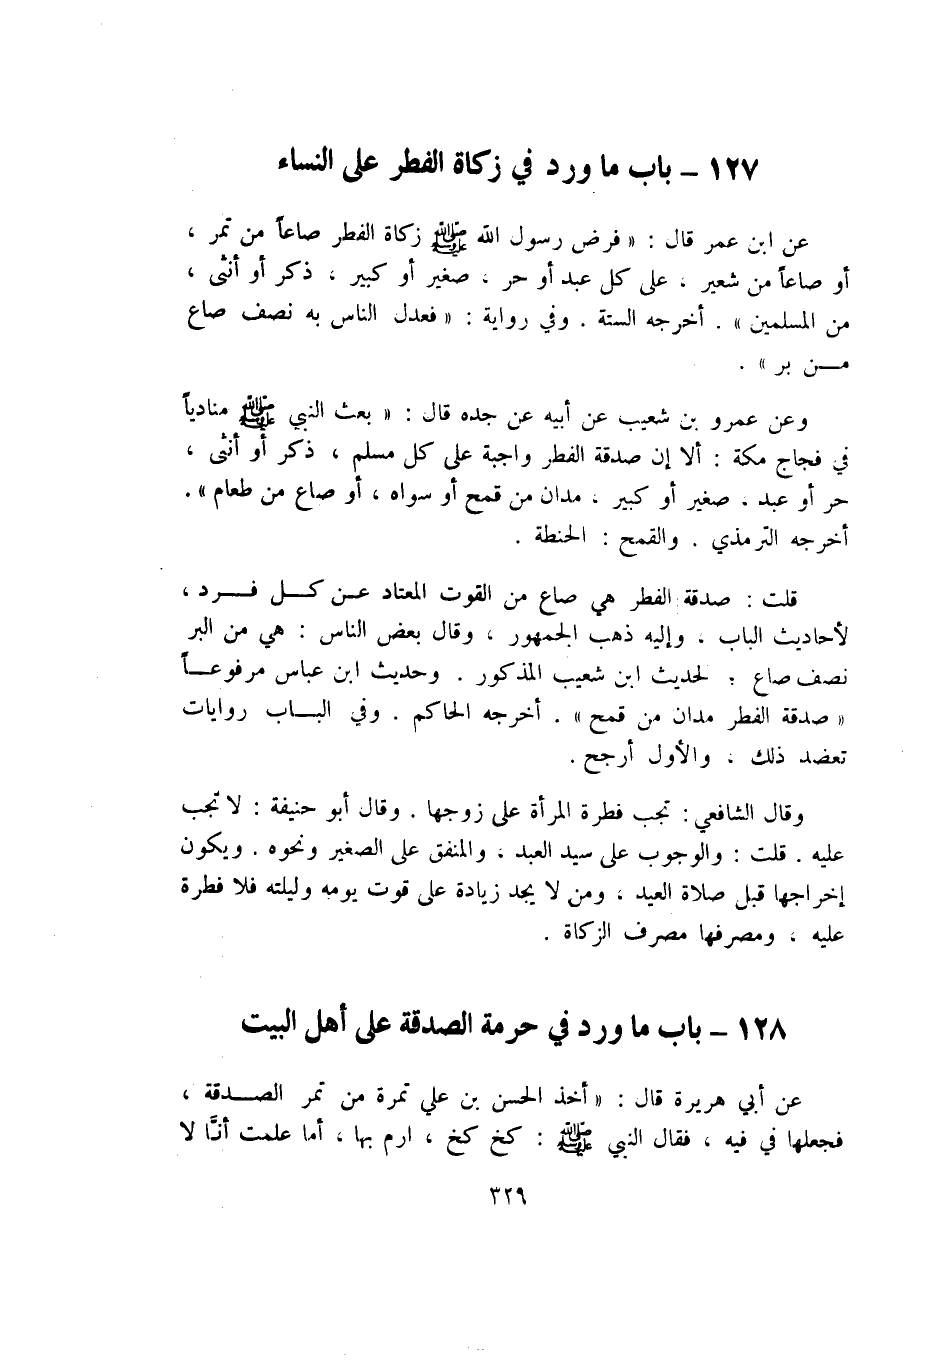 ١٢٧ – باب ما ورد في زكاة الفطر على النساء
عن ابن عمر قال : « فرض رسول الله ﷺ زكاة الفطر صاعاً من تمر ،
أو صاعاً من شعير ، على كل عبد أو حر ، صغير أو كبير ، ذكر أو أنثى ،
من المسلمين » . أخرجه الستة . وفي رواية : « فعدل الناس به نصف صاع
مـــن بر » .
وعن عمرو بن شعيب عن أبيه عن جده قال : « بعث النبي ﷺ منادياً
في فجاج مكة : ألا إن صدقة الفطر واجبة على كل مسلم ، ذكر أو أنثى ،
حر أو عبد ، صغير أو كبير ، مدان من قمح أو سواه ، أو صاع من طعام » .
أخرجه الترمذي . والقمح : الحنطة .
قلت : صدقة الفطر هي صاع من القوت المعتاد عـن كـــل فـــرد ،
لأحاديث الباب ، وإليه ذهب الجمهور ، وقال بعض الناس : هي من البر
نصف صاع ؛ لحديث ابن شعيب المذكور . وحديث ابن عباس مرفوعـــاً
« صدقة الفطر مدان من قمح » . أخرجه الحاكم . وفي البـــاب روايات
تعضد ذلك ، والأول أرجح .
وقال الشافعي : تجب فطرة المرأة على زوجها . وقال أبو حنيفة : لا تجب
عليه . قلت : والوجوب على سيد العبد ، والمنفق على الصغير ونحوه . ويكون
إخراجها قبل صلاة العيد ، ومن لا يجد زيادة على قوت يومه وليلته فلا فطرة
عليه ، ومصرفها مصرف الزكاة .
١٢٨ – باب ما ورد في حرمة الصدقة على أهل البيت
عن أبي هريرة قال : « أخذ الحسن بن علي تمرة من تمر الصـــدقة ،
فجعلها في فيه ، فقال النبي ﷺ : كخ كخ ، ارم بها ، أما علمت أنَّا لا
٣٢٩